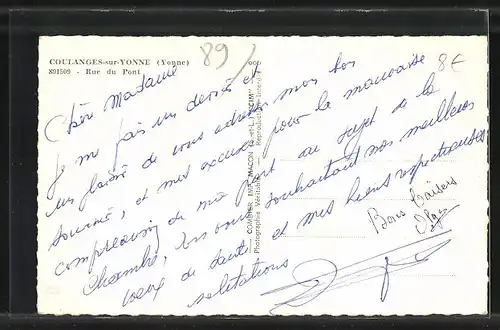 COULANGES-sur-YONNE (Yonne)
891509 - Rue du Pont
89
8€
Chère Madame
Je me fais un devoir et
un plaisir de vous adresser mon bon
souvenir, et mes excuses pour la mauvaise
compréension de ma part au sujet de la
Chambre, en vous souhaitant nos meilleurs
vœux de santé et mes biens respectueuses
salutations
Bons Baisers
COMBIER IMP. MACON (S.-et-L.) "CIM"
Photographie Véritable - Reproduction Interdite